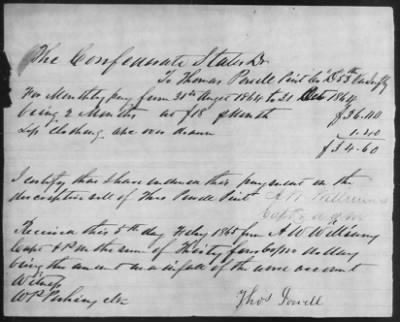 The Confederate States Dr
To Thomas Powell Priv Co D 53rd Va Infty
For Monthly pay from 31st Augt 1864 to 31 Oct 1864
being 2 Months at $18 p Month $36.00
Less clothing over drawn 1.40
$34.60
I certify that I have endorsed this payment on the
descriptive roll of Thos Powell Privt A W Williams
Capt
Received this 5th day 1865 from A W Williams
Capt the sum of Thirty four 60/100 dollars
being the amount in full of the above account
Witness
Thos Powell